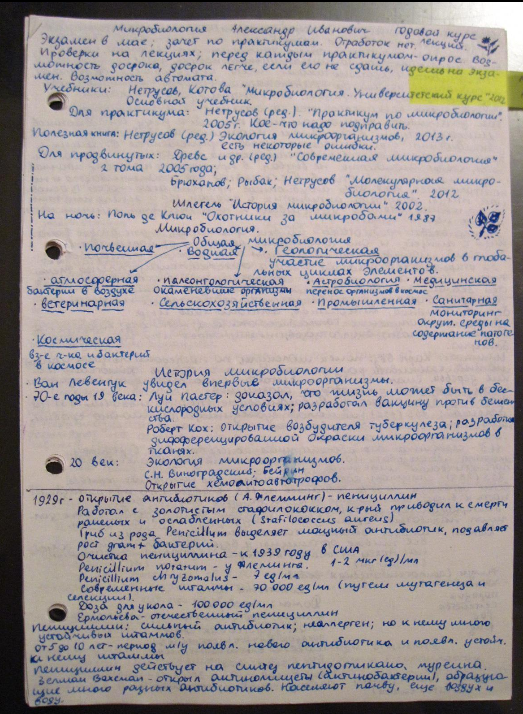 Микробиология Александр Иванович годовой курс
Экзамен в мае; зачет по практикумам. Отработок нет, лекция.
Проверки на лекциях; перед каждым практикумом - опрос. Воз-
можность досрока, досрок легче, если его не сдашь, идешь на экза-
мен. Возможность автомата.
Учебники: Нетрусов, Котова "Микробиология. Университетский курс"
Основной учебник.
Для практикума: Нетрусов (ред.). "Практикум по микробиологии".
2005г. Кое-что надо подправить.
Полезная книга: Нетрусов (ред.) Экология микроорганизмов, 2013 г.
есть некоторые ошибки.
Для продвинутых: и др. (ред.) "Современная микробиология"
2 тома 2005 года;
Брюханов, Рыбак, Нетрусов "Молекулярная микро-
биология". 2012
Шлегель "История микробиологии" 2002.
На ночь: Поль де Крюи "Охотники за микробами" 1987
Микробиология.
Общая микробиология
· Почвенная · Водная · Геологическая
участие микроорганизмов в глоба-
льных циклах элементов.
· атмосферная · Палеонтологическая · Астробиология · Медицинская
бактерии в воздухе окаменевшие организмы перенос организмов в космос
· ветеринарная · Сельскохозяйственная · Промышленная · Санитарная
мониторинг
окруж. среды на
содержание патоге-
нов.
· Космическая
вз-е ч-ка и бактерий
в космосе
История микробиологии
· Ван Левенгук увидел впервые микроорганизмы.
· 70-е годы 19 века: Луй Пастер: доказал, что жизнь может быть в бес-
кислородных условиях; разработал вакцину против бешен-
ства.
Роберт Кох: открытие возбудителя туберкулеза; разработка
дифференцированной окраски микроорганизмов в
тканях.
20 век: Экология микроорганизмов.
С.Н. Виноградский;
Открытие хемолитоавтотрофов.
1929г - открытие антибиотиков (А. Флемминг) - пенициллин
Работал с золотистым стафилококком, к-рый приводил к смерти
раненых и ослабленных (Stafilococcus aureus)
Гриб из рода Penicillum выделяет мощный антибиотик, подавляет
рост грам+ бактерий.
Очистка пенициллина - к 1939 году в США
Penicillium notatum - у Флеминга. 1-2 мкг (ед)/мл
Penicillium - 7 ед/мл
Современные штаммы - 70 000 ед/мл (путем мутагенеза и
селекции).
Доза для укола - 100 000 ед/мл
Ермольева - отечественный пенициллин
Пенициллин: сильный антибиотик; неаллерген; но к нему много
устойчивых штаммов.
От 5 до 10 лет - период м/у появл. нового антибиотика и появл. устойч.
к нему штаммы
Пенициллин действует на синтез пептидогликана, муреина.
Ваксман - открыл актиномицеты (актинобактерии), образую-
щие много разных антибиотиков. Населяют почву, еще воздух и
воду.